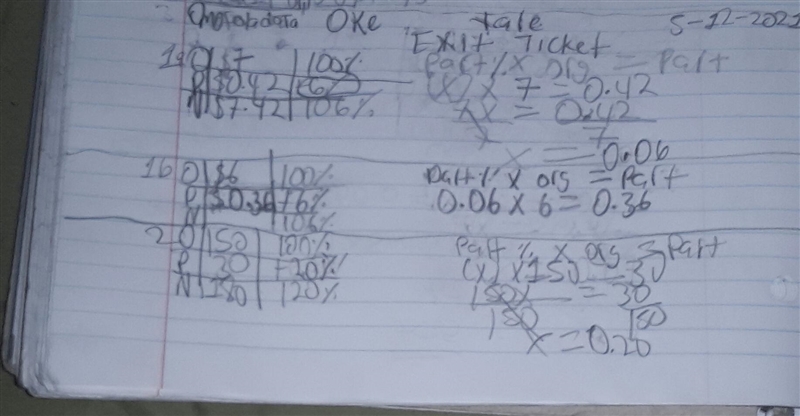 Oke tale 5-12-2021
Exit Ticket
1a O $7 100%
P $0.42 +6%
N $7.42 106%
Part % x org = Part
(x) x 7 = 0.42
7x = 0.42
7
x = 0.06
1b O $6 100%
P $0.36 +6%
N 106%
Part % x org = Part
0.06 x 6 = 0.36
2 O 150 100%
P 30 +20%
N 180 120%
Part % x org = Part
(x) x 150 = 30
150x = 30
150 150
x = 0.20